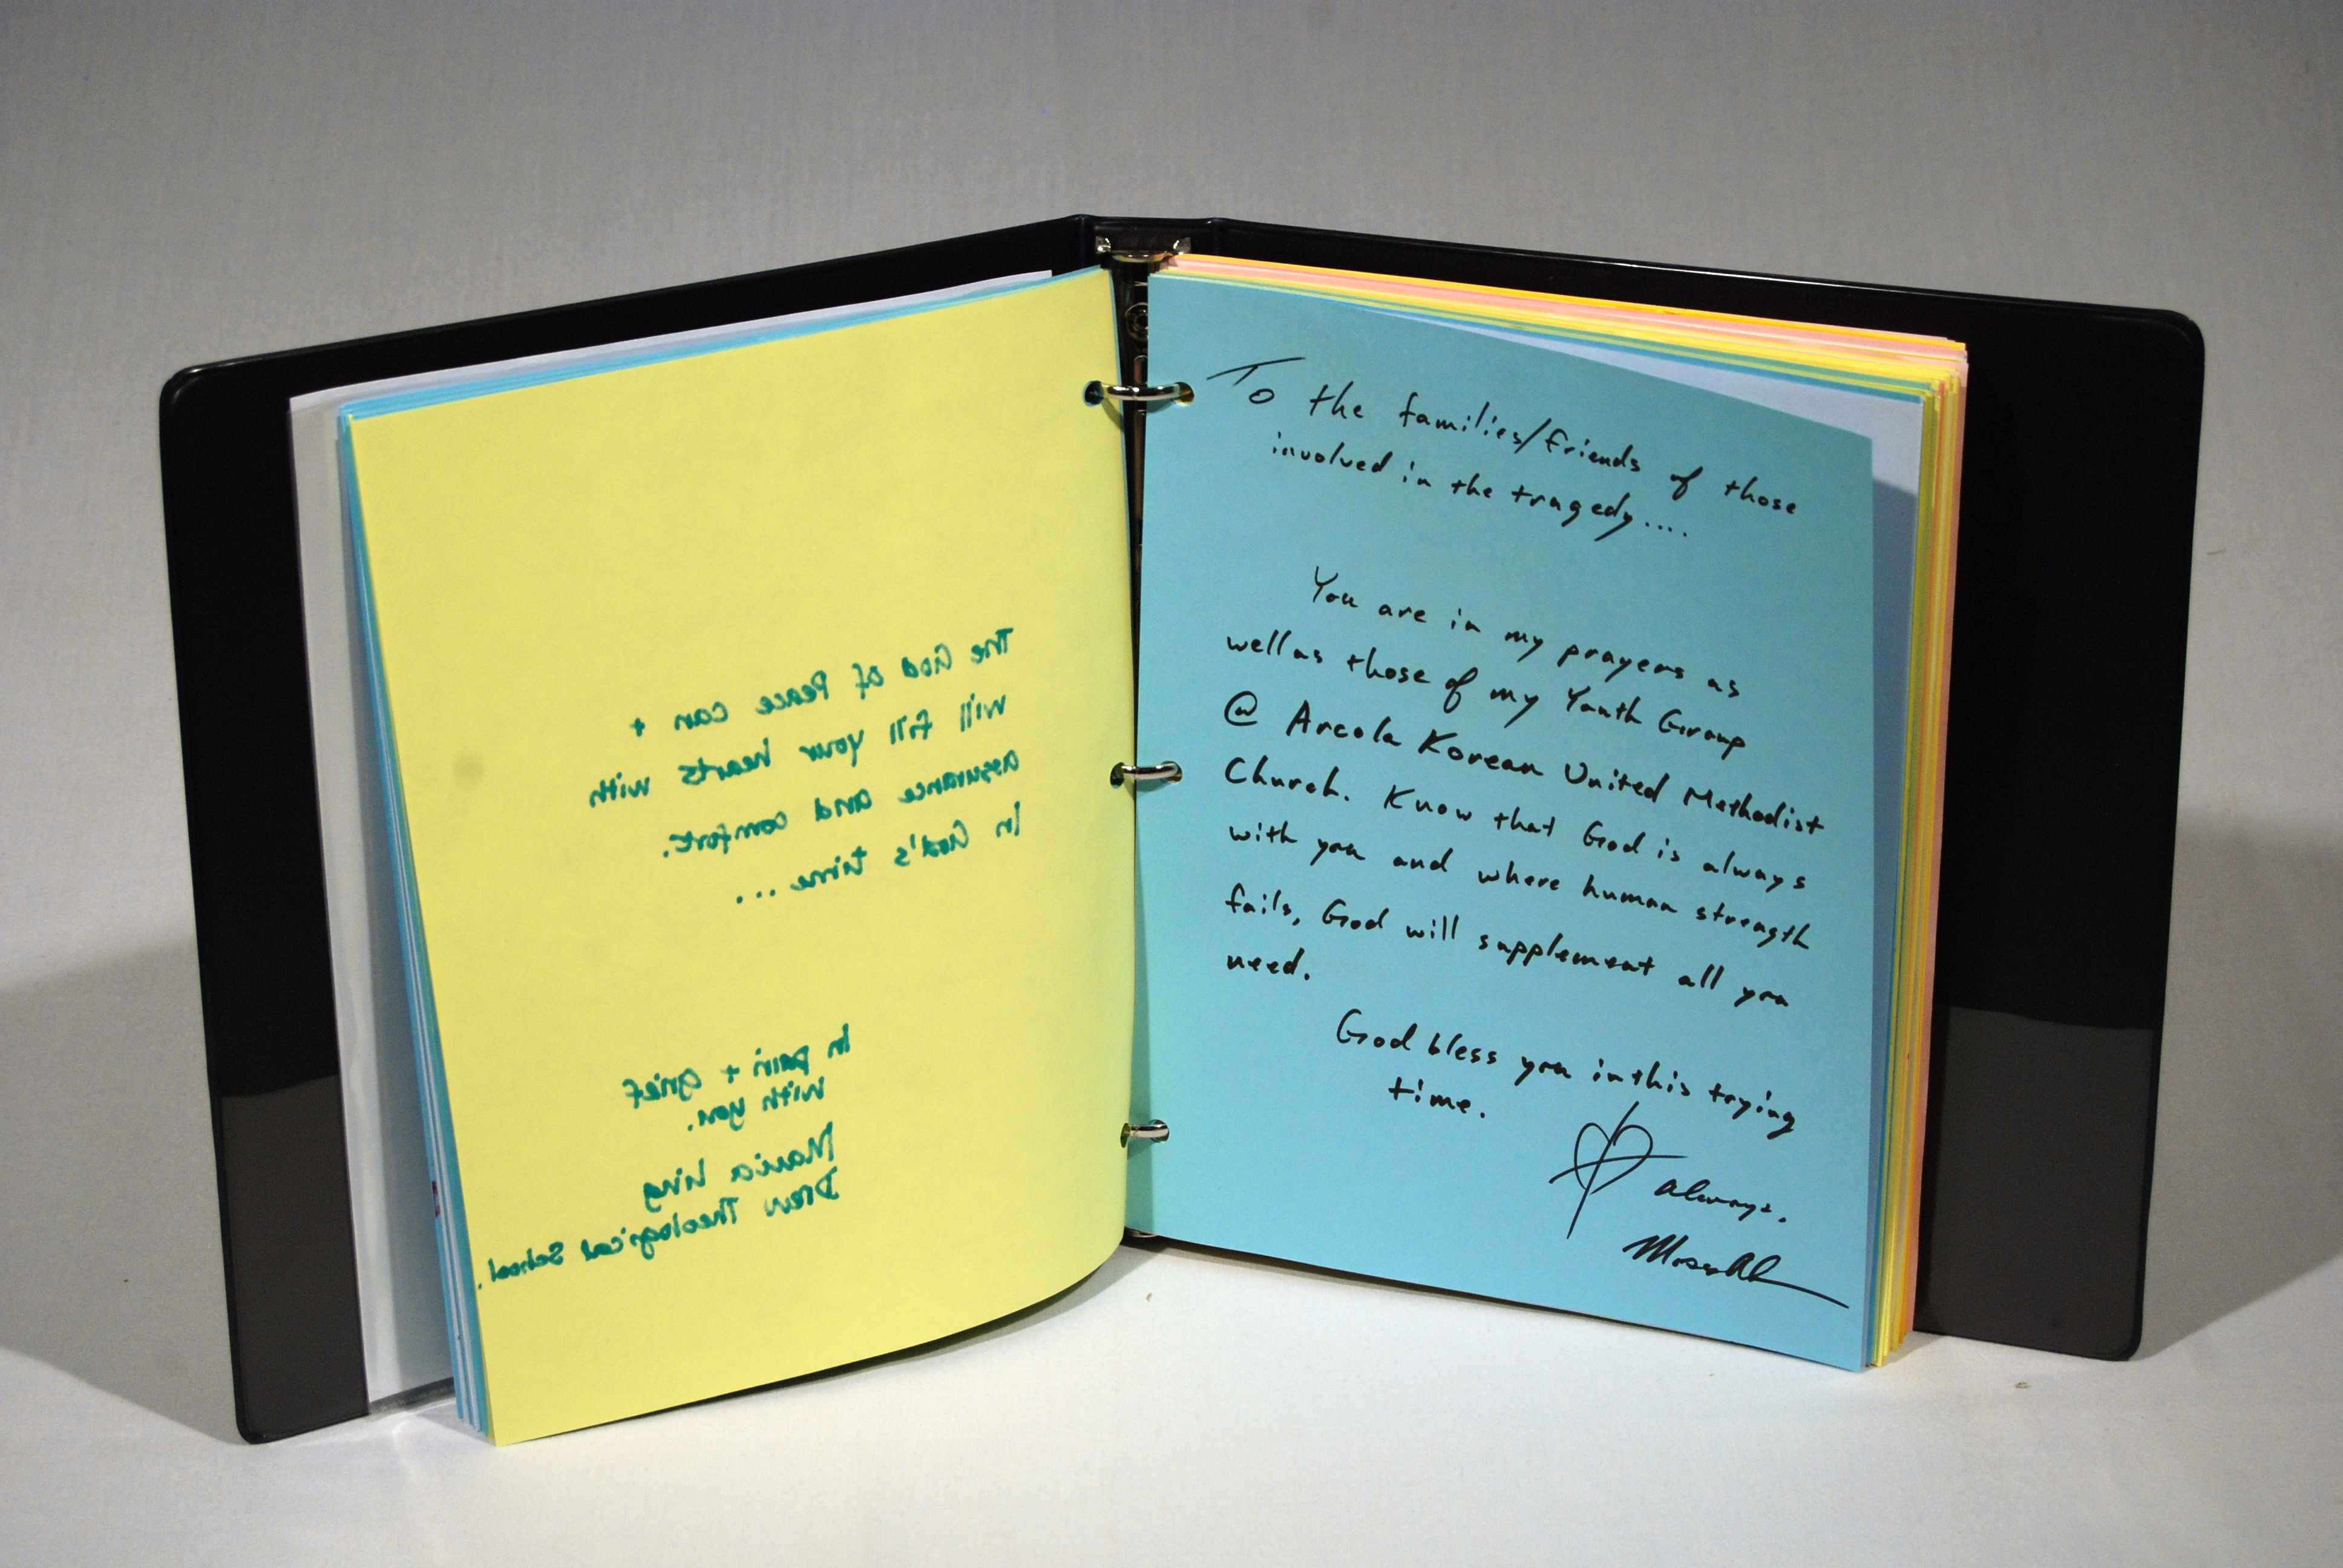 The God of Peace can +
will fill your hearts with
assurance and comfort.
In God's time...
In pain + grief
with you.
Maria Ling
Drew Theological School.
To the families/friends of those
involved in the tragedy....
You are in my prayers as
well as those of my Youth Group
@ Arcola Korean United Methodist
Church. Know that God is always
with you and where human strength
fails, God will supplement all you
need.
God bless you in this trying
time.
always.